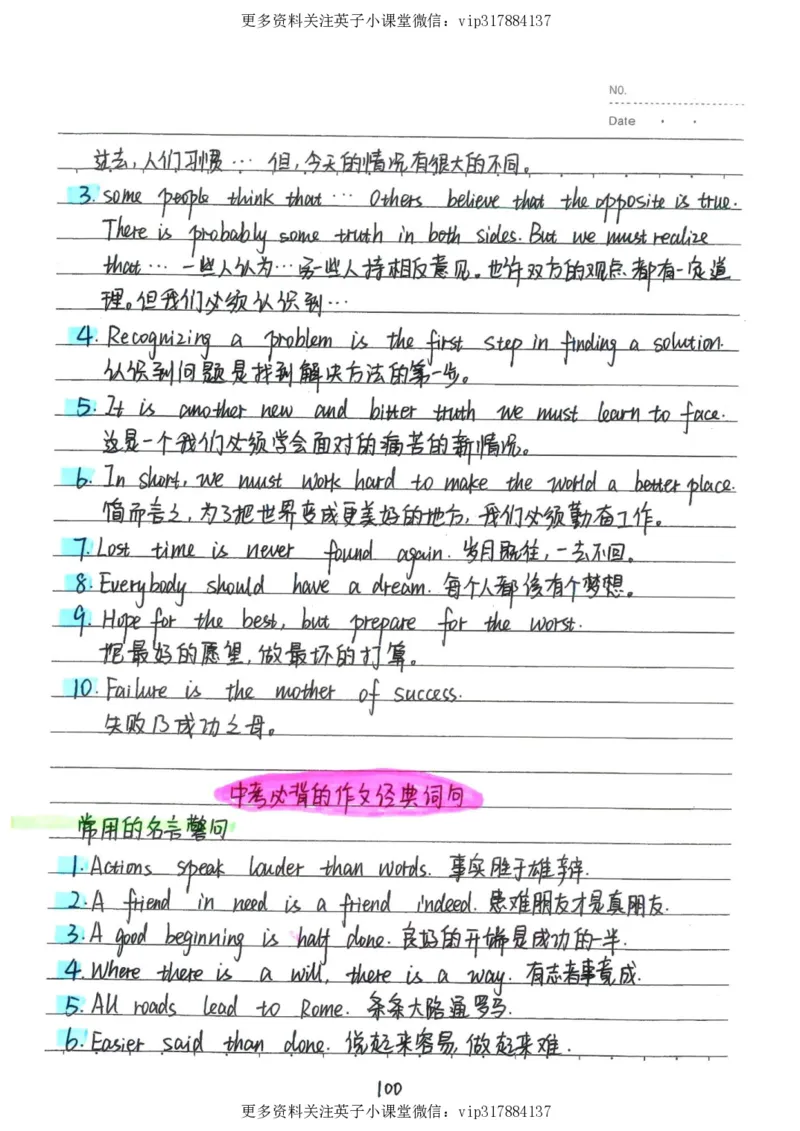 更多资料关注英子小课堂微信：vip317884137
NO.
Date
过去，人们习惯… 但，今天的情况有很大的不同。
3. some people think that… Others believe that the opposite is true.
There is probably some truth in both sides. But we must realize
that… 一些人认为… 另一些人持相反意见。也许双方的观点都有一定道
理。但我们必须认识到…
4. Recognizing a problem is the first step in finding a solution.
认识到问题是找到解决方法的第一步。
5. It is another new and bitter truth we must learn to face.
这是一个我们必须学会面对的痛苦的新情况。
6. In short, we must work hard to make the world a better place.
简而言之，为了把世界变成更美好的地方，我们必须勤奋工作。
7. Lost time is never found again. 岁月既往，一去不回。
8. Everybody should have a dream. 每个人都该有个梦想。
9. Hope for the best, but prepare for the worst.
抱最好的愿望，做最坏的打算。
10. Failure is the mother of success.
失败乃成功之母。
中考必背的作文经典词句
常用的名言警句
1. Actions speak louder than words. 事实胜于雄辩.
2. A friend in need is a friend indeed. 患难朋友才是真朋友.
3. A good beginning is half done. 良好的开端是成功的一半.
4. Where there is a will, there is a way. 有志者事竟成.
5. All roads lead to Rome. 条条大路通罗马.
6. Easier said than done. 说起来容易，做起来难.
100
更多资料关注英子小课堂微信：vip317884137